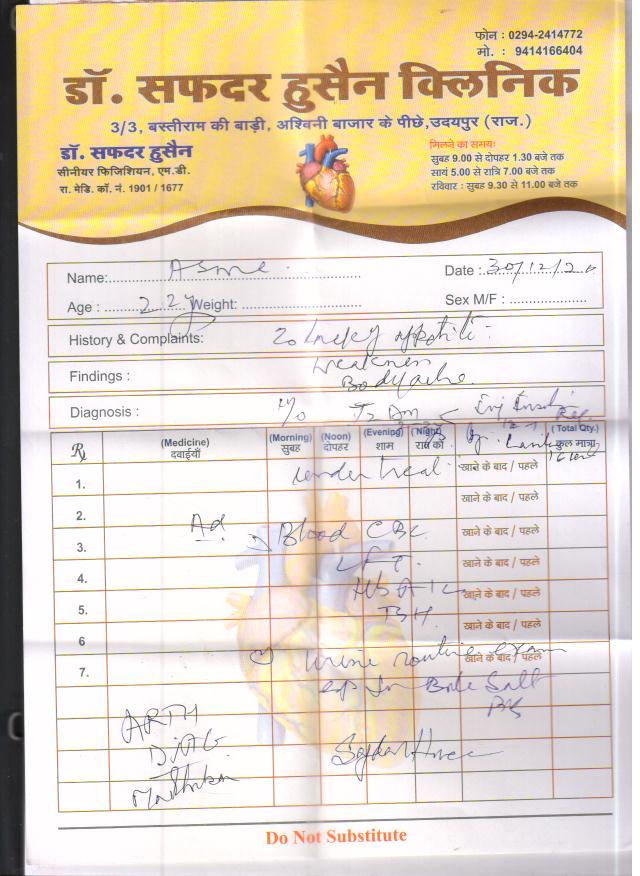 फोन : 0294-2414772
मो. : 9414166404
डॉ. सफदर हुसैन क्लिनिक
3/3, बस्तीराम की बाड़ी, अश्विनी बाजार के पीछे,उदयपुर (राज.)
डॉ. सफदर हुसैन
सीनीयर फिजिशियन, एम.डी.
रा. मेडि. कॉ. नं. 1901 / 1677
मिलने का समयः
सुबह 9.00 से दोपहर 1.30 बजे तक
सायं 5.00 से रात्रि 7.00 बजे तक
रविवार : सुबह 9.30 से 11.00 बजे तक
Name: Date : 30/12/20
Age : 22y Weight: Sex M/F :
History & Complaints:
Findings : Weakness
Bodyache
Diagnosis :
Rx (Medicine) (Morning) (Noon) (Evening) (Night) (Total Qty.)
दवाईयाँ सुबह दोपहर शाम रात को कुल मात्रा
1. under treat खाने के बाद / पहले
2. खाने के बाद / पहले
3. Ad Blood CBC खाने के बाद / पहले
4. LFT खाने के बाद / पहले
5. HbA1c खाने के बाद / पहले
TSH
6 खाने के बाद / पहले
7. Urine routine exam खाने के बाद / पहले
Bile Salt
ARTH
DIAG
Do Not Substitute